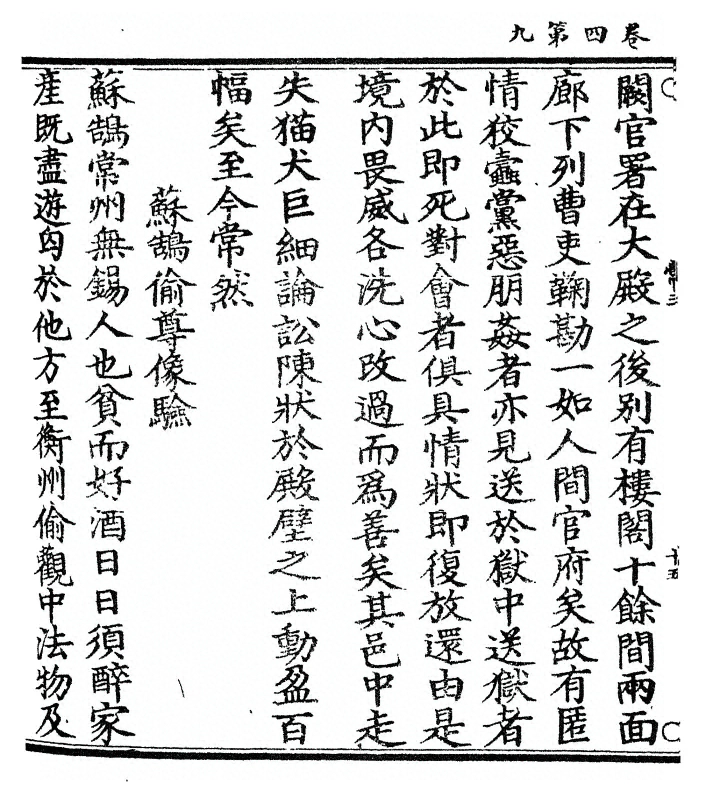 卷四第九
闕官署在大殿之後別有樓閣十餘間兩面
廊下列曹吏鞫勘一如人間官府矣故有匿
情狡蠹黨惡朋姦者亦見送於獄中送獄者
於此即死對會者俱具情狀即復放還由是
境内畏威各洗心改過而為善矣其邑中走
失猫犬巨細論訟陳狀於殿壁之上動盈百
幅矣至今常然
蘇鵠偷尊像驗
蘇鵠常州無錫人也貧而好酒日日須醉家
産既盡遊匃於他方至衡州偷觀中法物及